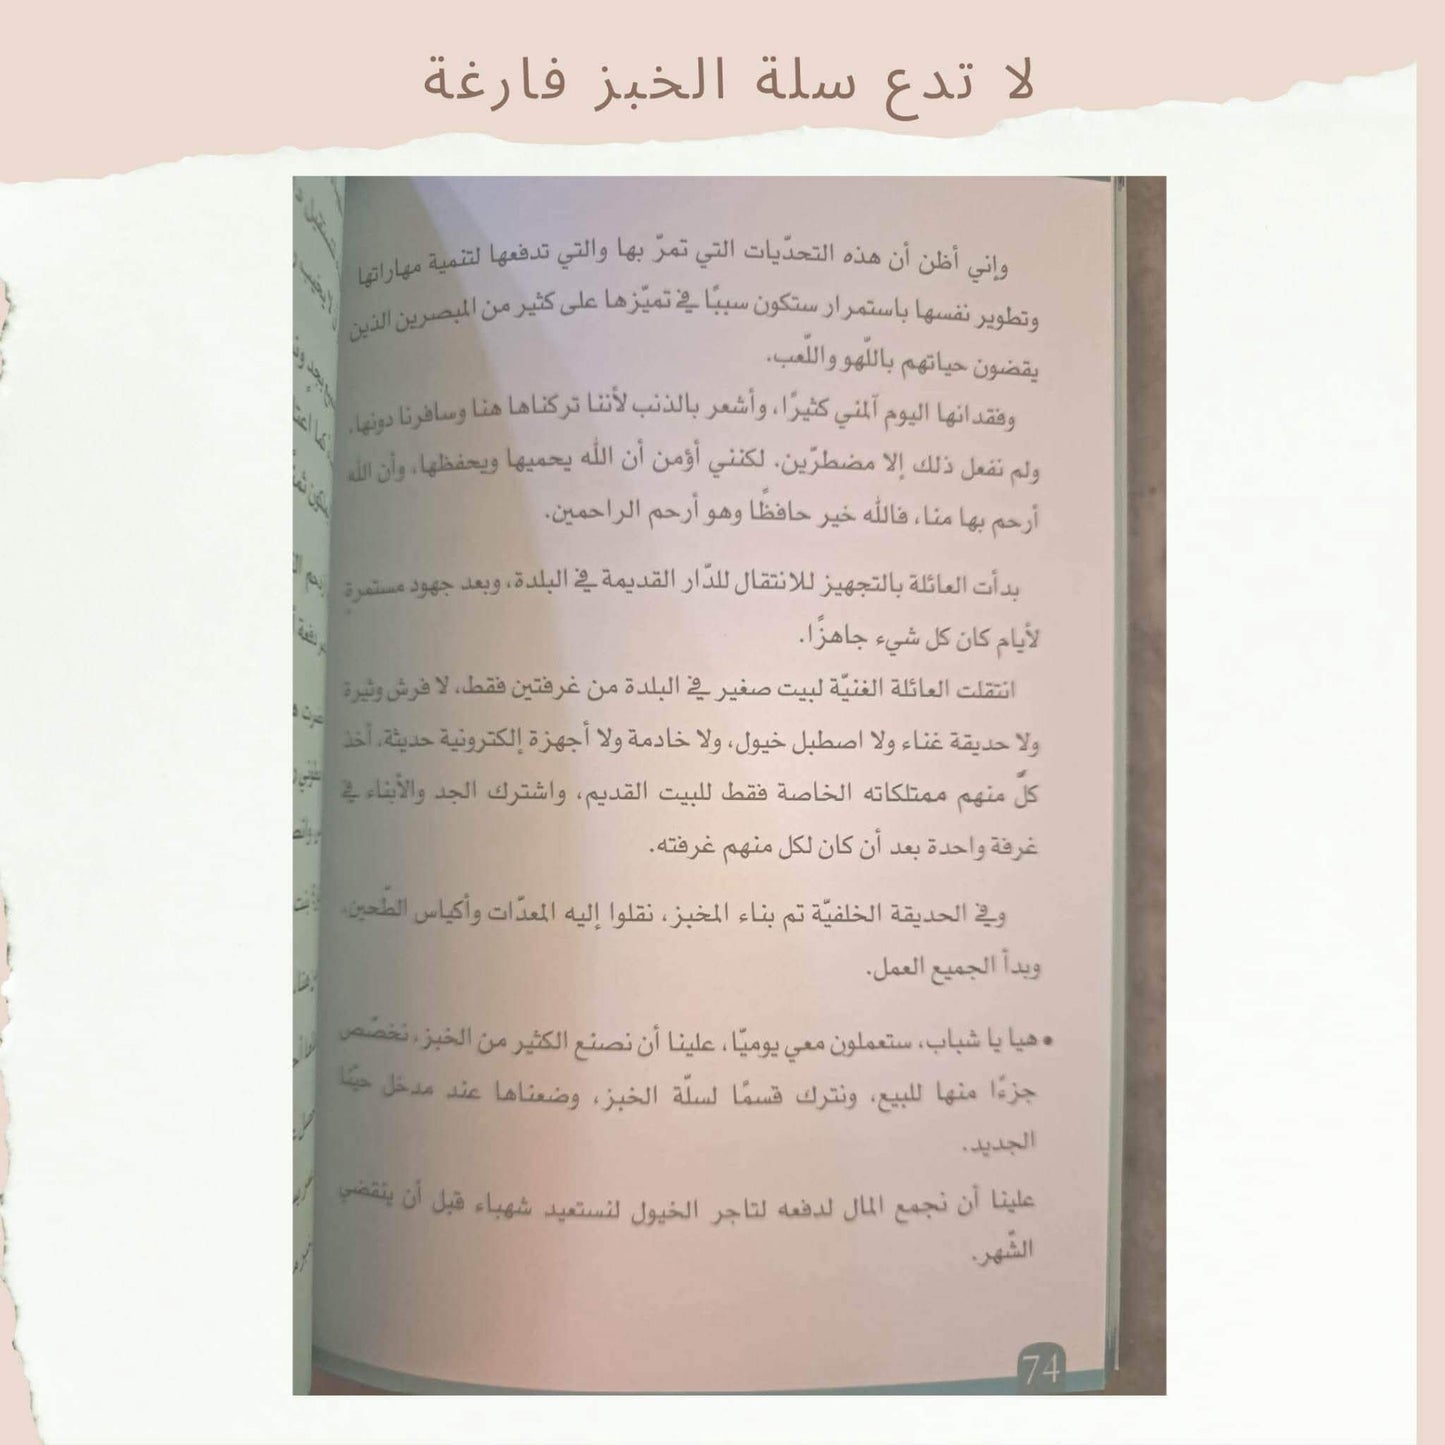 لا تدع سلة الخبز فارغة
وإني أظن أن هذه التحدّيات التي تمرّ بها والتي تدفعها لتنمية مهاراتها
وتطوير نفسها باستمرار ستكون سببًا في تميّزها على كثير من المبصرين الذين
يقضون حياتهم باللّهو واللّعب.
وفقدانها اليوم آلمني كثيرًا، وأشعر بالذنب لأننا تركناها هنا وسافرنا دونها،
ولم نفعل ذلك إلا مضطرّين. لكنني أؤمن أن الله يحميها ويحفظها، وأن الله
أرحم بها منا، فالله خير حافظًا وهو أرحم الراحمين.
بدأت العائلة بالتجهيز للانتقال للدّار القديمة في البلدة، وبعد جهود مستمرة
لأيام كان كل شيء جاهزًا.
انتقلت العائلة الغنيّة لبيت صغير في البلدة من غرفتين فقط، لا فرش وثيرة
ولا حديقة غناء ولا اصطبل خيول، ولا خادمة ولا أجهزة إلكترونية حديثة، أخذ
كلٌّ منهم ممتلكاته الخاصة فقط للبيت القديم، واشترك الجد والأبناء في
غرفة واحدة بعد أن كان لكل منهم غرفته.
وفي الحديقة الخلفيّة تم بناء المخبز، نقلوا إليه المعدّات وأكياس الطّحين،
وبدأ الجميع العمل.
• هيا يا شباب، ستعملون معي يوميّا، علينا أن نصنع الكثير من الخبز، نخصّص
جزءًا منها للبيع، ونترك قسمًا لسلّة الخبز، وضعناها عند مدخل حيّنا
الجديد.
علينا أن نجمع المال لدفعه لتاجر الخيول لنستعيد شهباء قبل أن ينقضي
الشّهر.
74